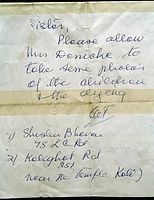 Sister,
Please allow
Mrs Deniche to
take some photos
of the children
& the dying
1) Shishu Bhavan
78 L C Rd
2) Kalighat Rd
251
near the temple Kali)